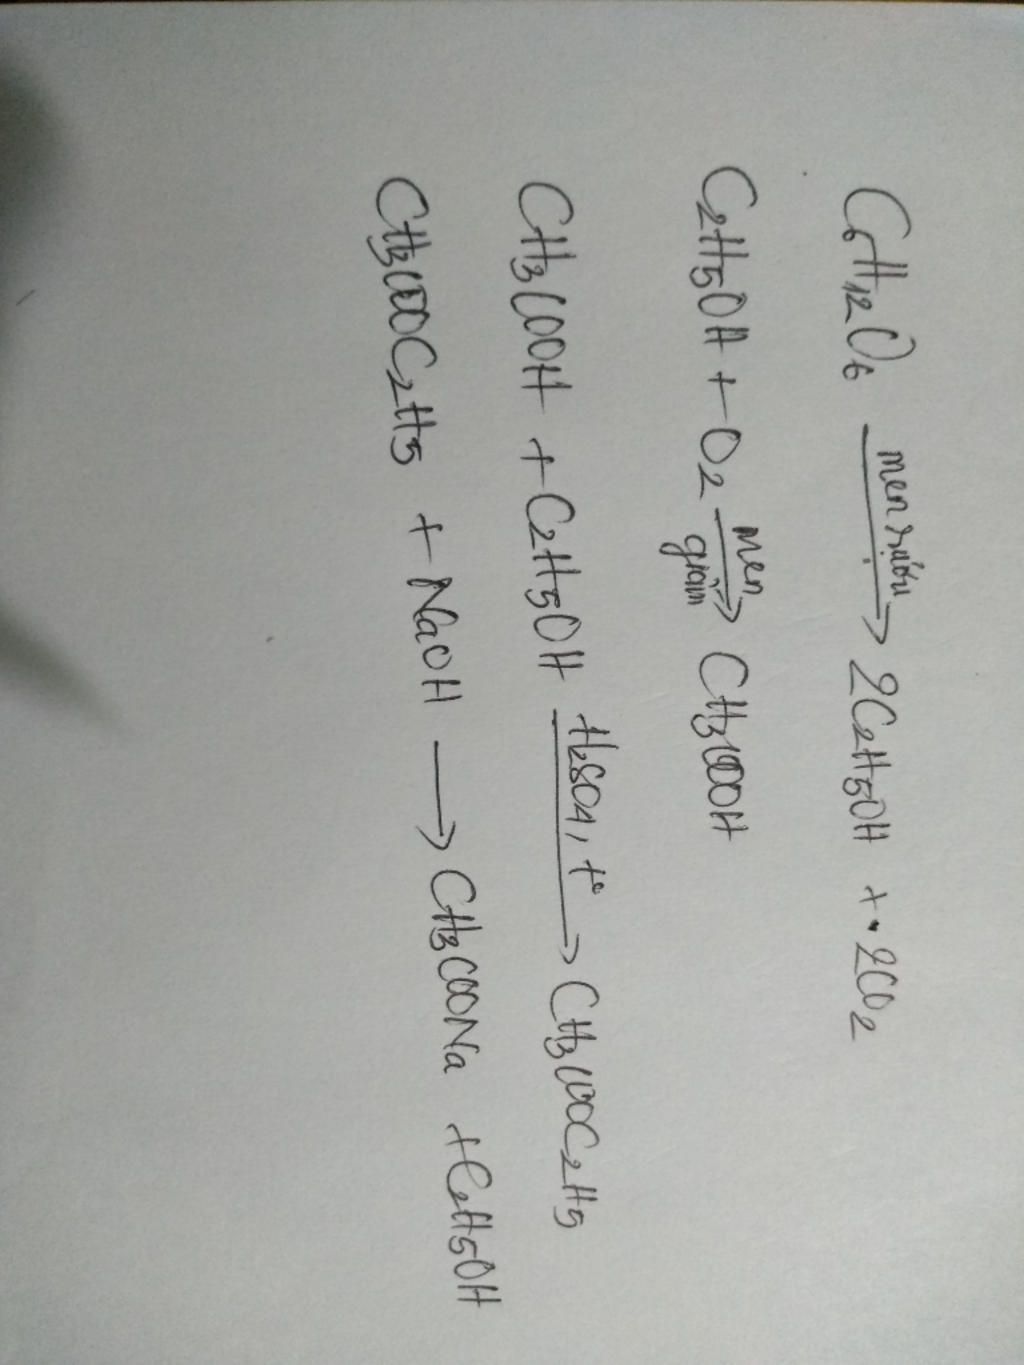 C6H12O6 men rượu → 2C2H5OH + 2CO2
C2H5OH + O2 men giấm → CH3COOH
CH3COOH + C2H5OH H2SO4, t° → CH3COOC2H5
CH3COOC2H5 + NaOH → CH3COONa + C2H5OH